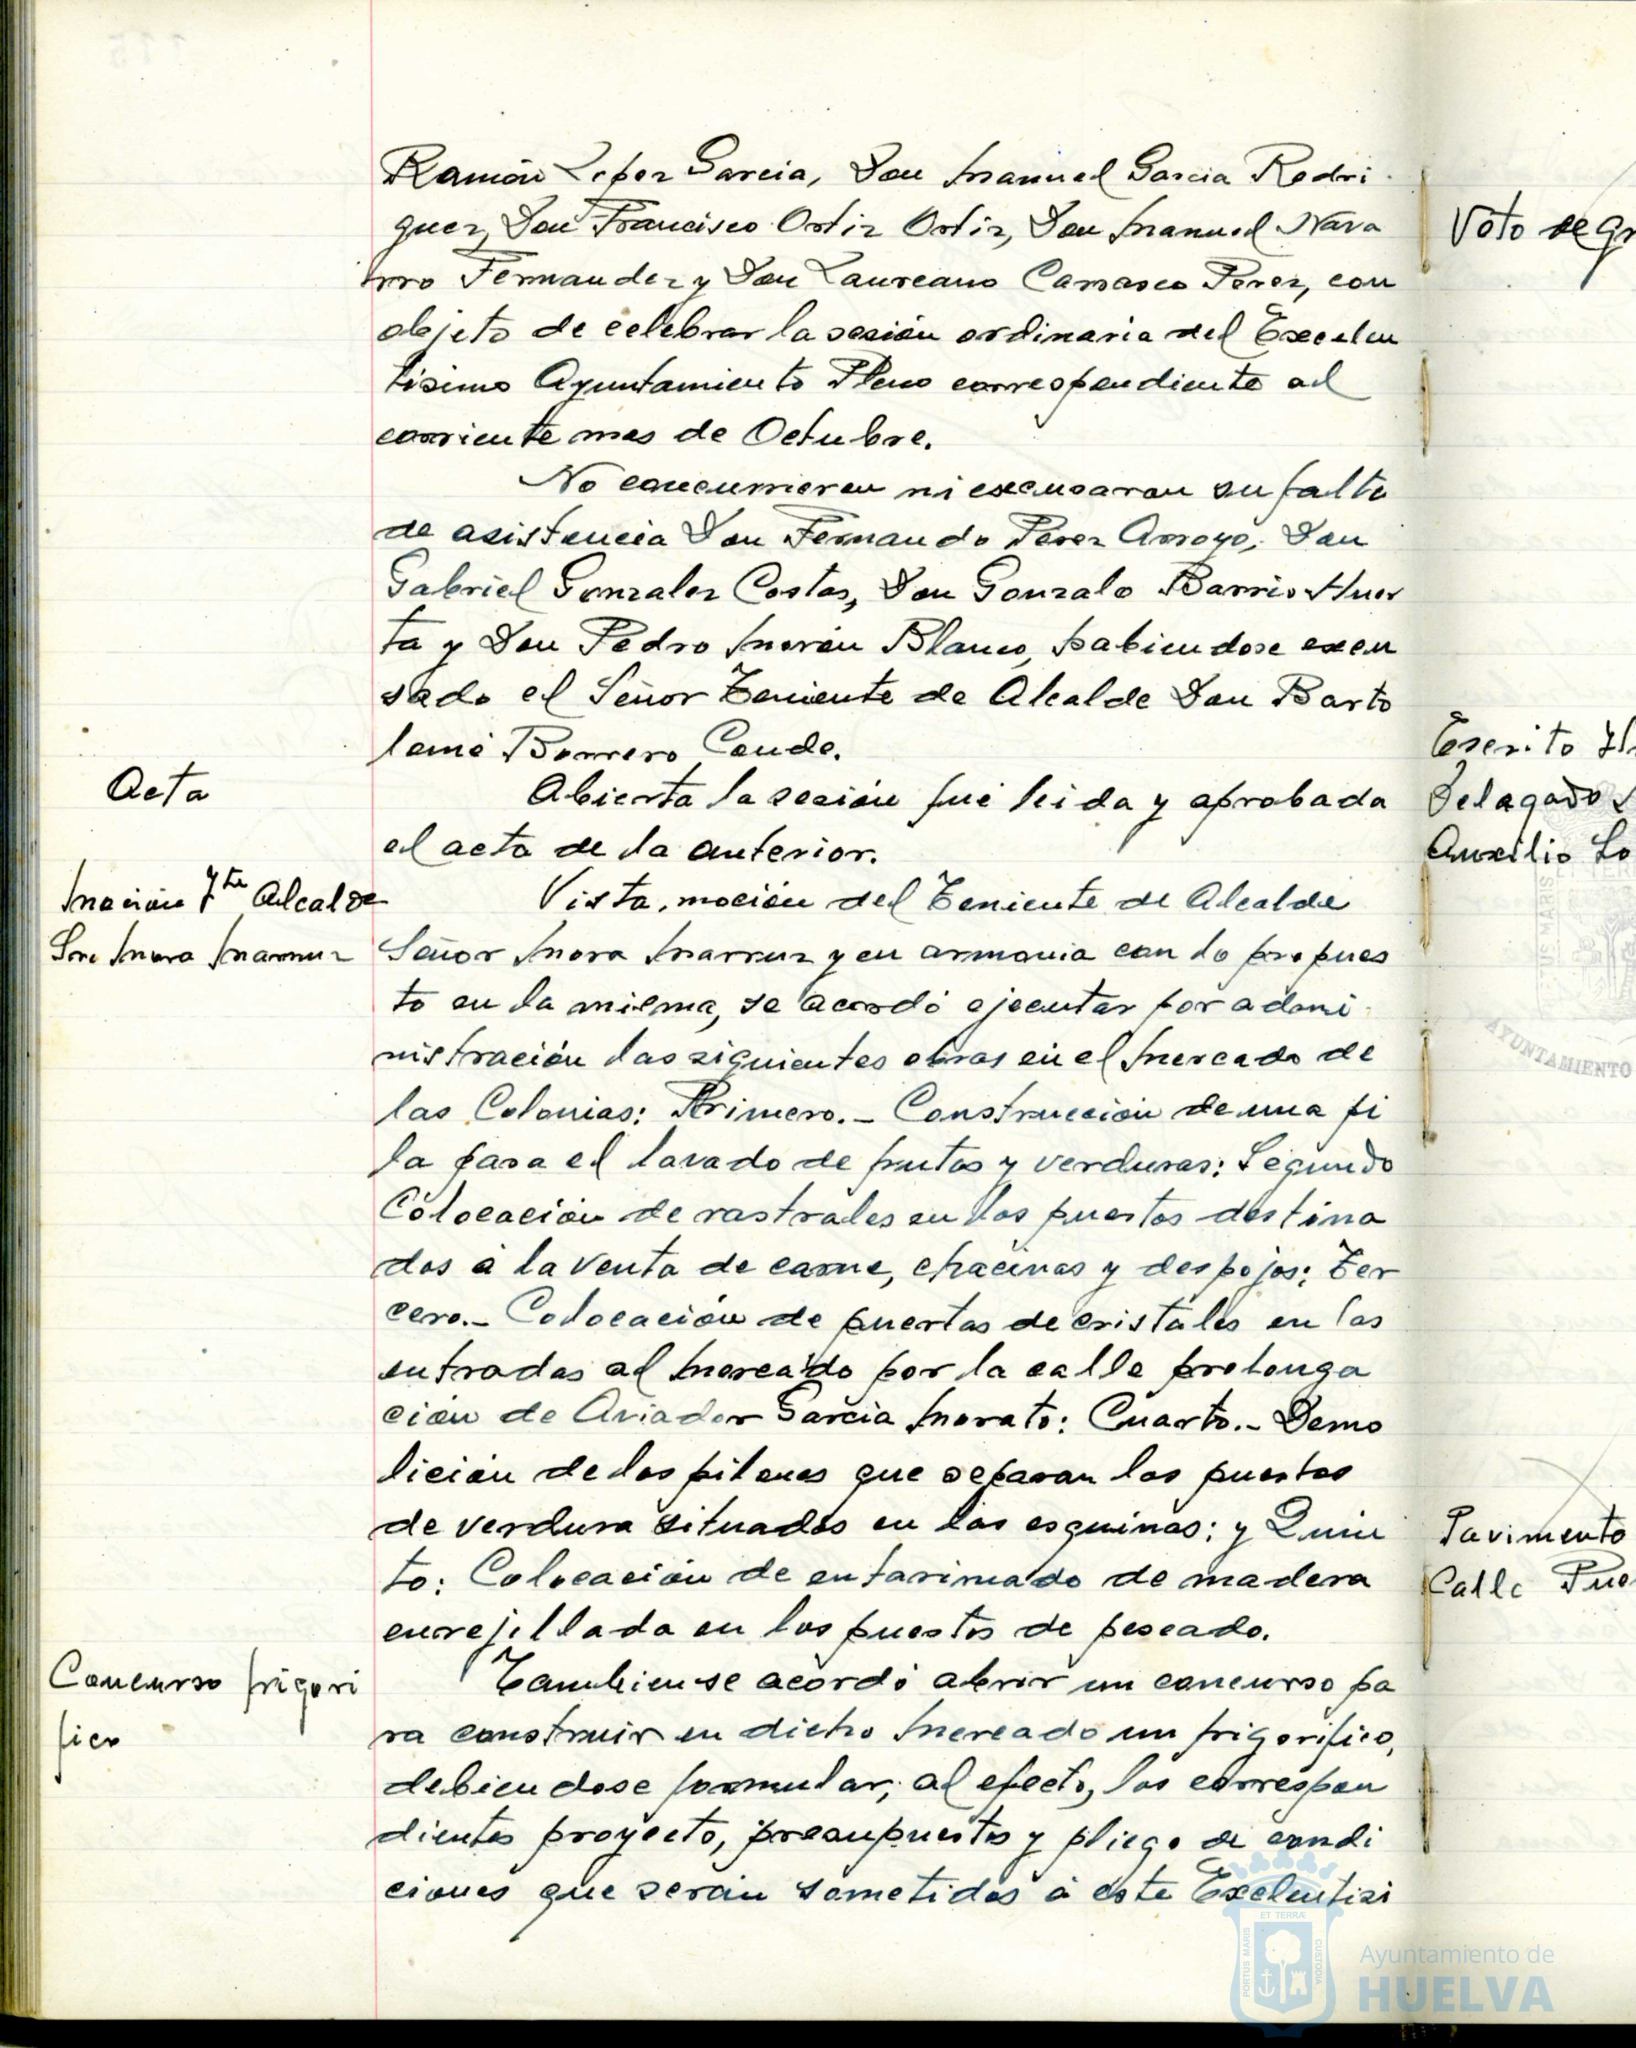 Ramón Lopez Garcia, Don Manuel Garcia Rodri
guez, Don Francisco Ortiz Ortiz, Don Manuel Nava
rro Fernandez y Don Laureano Carrasco Perez, con
objeto de celebrar la sesión ordinaria del Excelen
tisimo Ayuntamiento Pleno correspondiente al
corriente mes de Octubre.
No concurrieron ni excusaron su falta
de asistencia Don Fernando Perez Arroyo, Don
Gabriel Gonzalez Costas, Don Gonzalo Barrio Huer
ta y Don Pedro Morón Blanco, habiendose excu
sado el Señor Teniente de Alcalde Don Barto
lomé Borrero Conde.
Acta
Abierta la sesión fué leida y aprobada
el acta de la anterior.
Moción Tte Alcalde
Sr. Mora Marruz
Vista, moción del Teniente de Alcalde
Señor Mora Marruz y en armonia con lo propues
to en la misma, se acordó ejecutar por admi
nistración las siguientes obras en el Mercado de
las Colonias: Primero.- Construcción de una pi
la para el lavado de frutas y verduras: Segundo
Colocación de rastrales en los puestos destina
dos á la venta de carne, chacinas y despojos: Ter
cero.- Colocación de puertas de cristales en las
entradas al Mercado por la calle prolonga
ción de Aviador Garcia Morato: Cuarto.- Demo
lición de los pilares que separan los puestos
de verdura situados en las esquinas: y Quin
to: Colocación de entarimado de madera
enrejillada en los puestos de pescado.
Concurso frigori
fico
Tambien se acordó abrir un concurso pa
ra construir en dicho Mercado un frigorifico,
debiendose formular, al efecto, los correspon
dientes proyecto, presupuestos y pliego de condi
ciones que serán sometidos á este Excelentisi
Voto de gr
Escrito
Delegado
Auxilio So
Pavimento
Calle Pue
AYUNTAMIENTO
PORTUS MARIS
ET TERRÆ
CUSTODIA
Ayuntamiento de
HUELVA